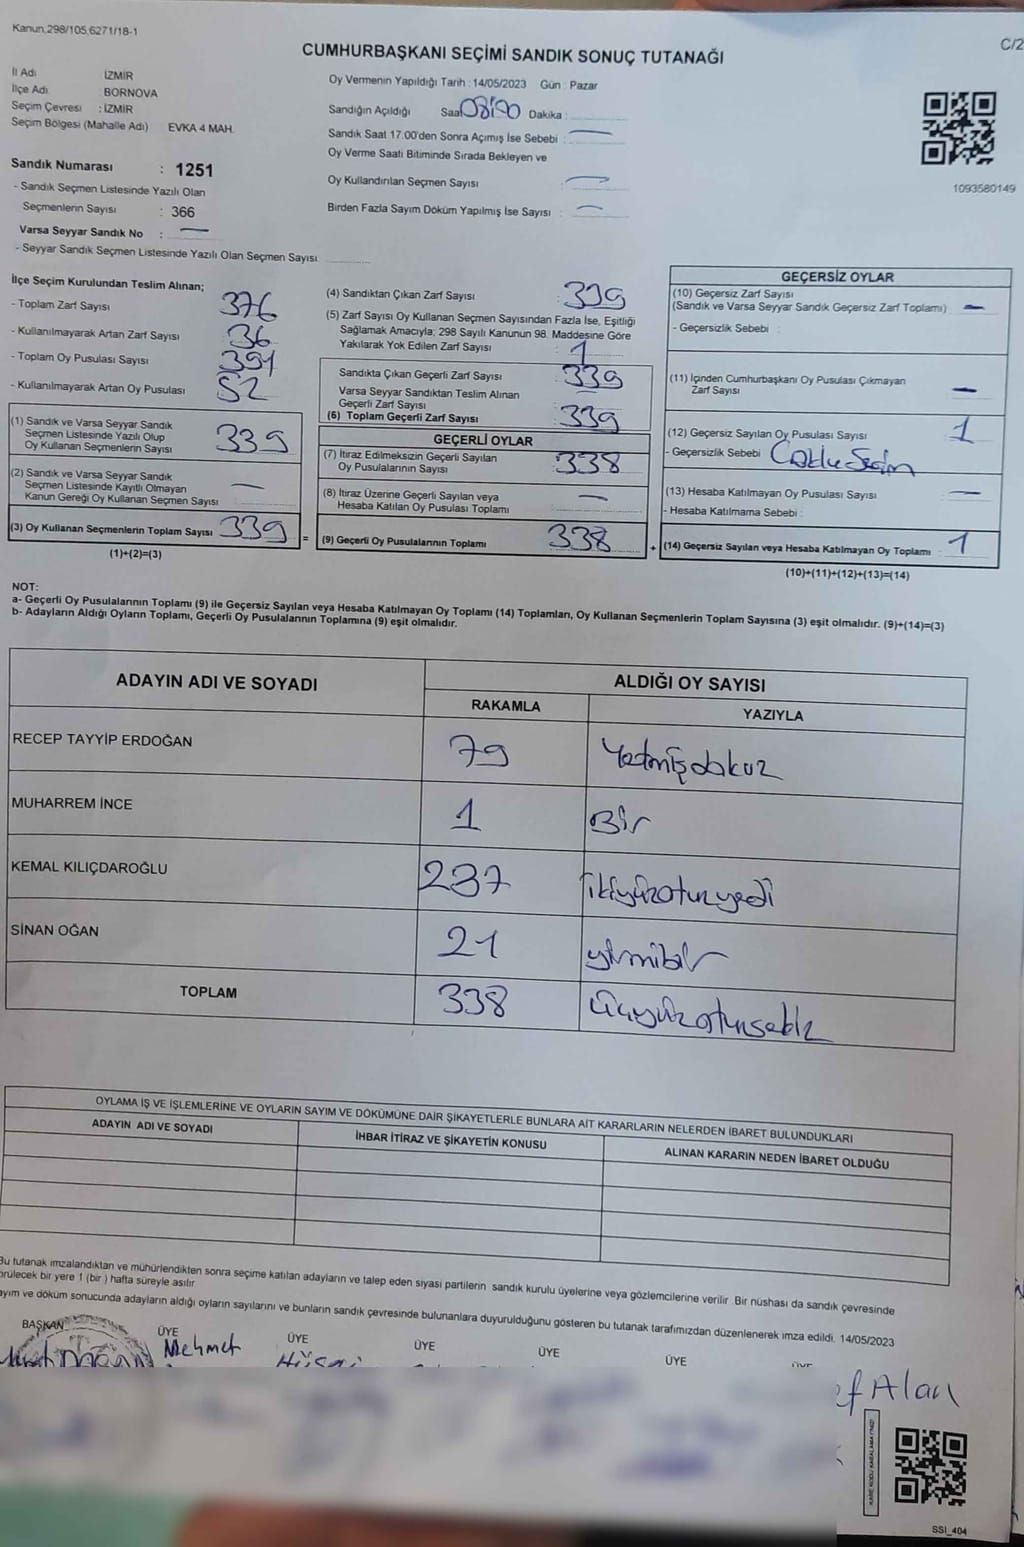 Kanun,298/105,6271/18-1
C/2
CUMHURBAŞKANI SEÇİMİ SANDIK SONUÇ TUTANAĞI
İl Adı İZMİR
İlçe Adı BORNOVA
Seçim Çevresi : İZMİR
Seçim Bölgesi (Mahalle Adı) EVKA 4 MAH.
Sandık Numarası : 1251
- Sandık Seçmen Listesinde Yazılı Olan
Seçmenlerin Sayısı : 366
Varsa Seyyar Sandık No : —
- Seyyar Sandık Seçmen Listesinde Yazılı Olan Seçmen Sayısı:
Oy Vermenin Yapıldığı Tarih : 14/05/2023 Gün : Pazar
Sandığın Açıldığı Saat Dakika :
Sandık Saat 17.00'den Sonra Açımış İse Sebebi : —
Oy Verme Saati Bitiminde Sırada Bekleyen ve
Oy Kullandırılan Seçmen Sayısı : —
Birden Fazla Sayım Döküm Yapılmış İse Sayısı : —
1093580149
İlçe Seçim Kurulundan Teslim Alınan;
- Toplam Zarf Sayısı 376
- Kullanılmayarak Artan Zarf Sayısı 36
- Toplam Oy Pusulası Sayısı 391
- Kullanılmayarak Artan Oy Pusulası 52
(1) Sandık ve Varsa Seyyar Sandık
Seçmen Listesinde Yazılı Olup
Oy Kullanan Seçmenlerin Sayısı 339
(2) Sandık ve Varsa Seyyar Sandık
Seçmen Listesinde Kayıtlı Olmayan
Kanun Gereği Oy Kullanan Seçmen Sayısı —
(3) Oy Kullanan Seçmenlerin Toplam Sayısı 339
(1)+(2)=(3)
=
(4) Sandıktan Çıkan Zarf Sayısı : 339
(5) Zarf Sayısı Oy Kullanan Seçmen Sayısından Fazla İse, Eşitliği
Sağlamak Amacıyla; 298 Sayılı Kanunun 98. Maddesine Göre
Yakılarak Yok Edilen Zarf Sayısı : 1
Sandıkta Çıkan Geçerli Zarf Sayısı : 339
Varsa Seyyar Sandıktan Teslim Alınan
Geçerli Zarf Sayısı :
(6) Toplam Geçerli Zarf Sayısı : 339
GEÇERLİ OYLAR
(7) İtiraz Edilmeksizin Geçerli Sayılan
Oy Pusulalarının Sayısı : 338
(8) İtiraz Üzerine Geçerli Sayılan veya
Hesaba Katılan Oy Pusulası Toplamı : —
(9) Geçerli Oy Pusulalarının Toplamı 338
+
GEÇERSİZ OYLAR
(10) Geçersiz Zarf Sayısı
(Sandık ve Varsa Seyyar Sandık Geçersiz Zarf Toplamı) : —
- Geçersizlik Sebebi :
(11) İçinden Cumhurbaşkanı Oy Pusulası Çıkmayan
Zarf Sayısı : —
(12) Geçersiz Sayılan Oy Pusulası Sayısı : 1
- Geçersizlik Sebebi :
(13) Hesaba Katılmayan Oy Pusulası Sayısı : —
- Hesaba Katılmama Sebebi :
(14) Geçersiz Sayılan veya Hesaba Katılmayan Oy Toplamı : 1
(10)+(11)+(12)+(13)=(14)
NOT:
a- Geçerli Oy Pusulalarının Toplamı (9) ile Geçersiz Sayılan veya Hesaba Katılmayan Oy Toplamı (14) Toplamları, Oy Kullanan Seçmenlerin Toplam Sayısına (3) eşit olmalıdır. (9)+(14)=(3)
b- Adayların Aldığı Oyların Toplamı, Geçerli Oy Pusulalarının Toplamına (9) eşit olmalıdır.
ADAYIN ADI VE SOYADI ALDIĞI OY SAYISI
RAKAMLA YAZIYLA
RECEP TAYYİP ERDOĞAN 79 Yetmişdokuz
MUHARREM İNCE 1 Bir
KEMAL KILIÇDAROĞLU 237 ikiyüzotuzyedi
SİNAN OĞAN 21 yirmibir
TOPLAM 338 üçyüzotuzsekiz
OYLAMA İŞ VE İŞLEMLERİNE VE OYLARIN SAYIM VE DÖKÜMÜNE DAİR ŞİKAYETLERLE BUNLARA AİT KARARLARIN NELERDEN İBARET BULUNDUKLARI
ADAYIN ADI VE SOYADI İHBAR İTİRAZ VE ŞİKAYETİN KONUSU ALINAN KARARIN NEDEN İBARET OLDUĞU
Bu tutanak imzalandıktan ve mühürlendikten sonra seçime katılan adayların ve talep eden siyasi partilerin sandık kurulu üyelerine veya gözlemcilerine verilir. Bir nüshası da sandık çevresinde
görülecek bir yere 1 (bir ) hafta süreyle asılır.
ayım ve döküm sonucunda adayların aldığı oyların sayılarını ve bunların sandık çevresinde bulunanlara duyurulduğunu gösteren bu tutanak tarafımızdan düzenlenerek imza edildi. 14/05/2023
BAŞKAN ÜYE ÜYE ÜYE ÜYE ÜYE ÜYE
Mehmet
Alan
SSI_404